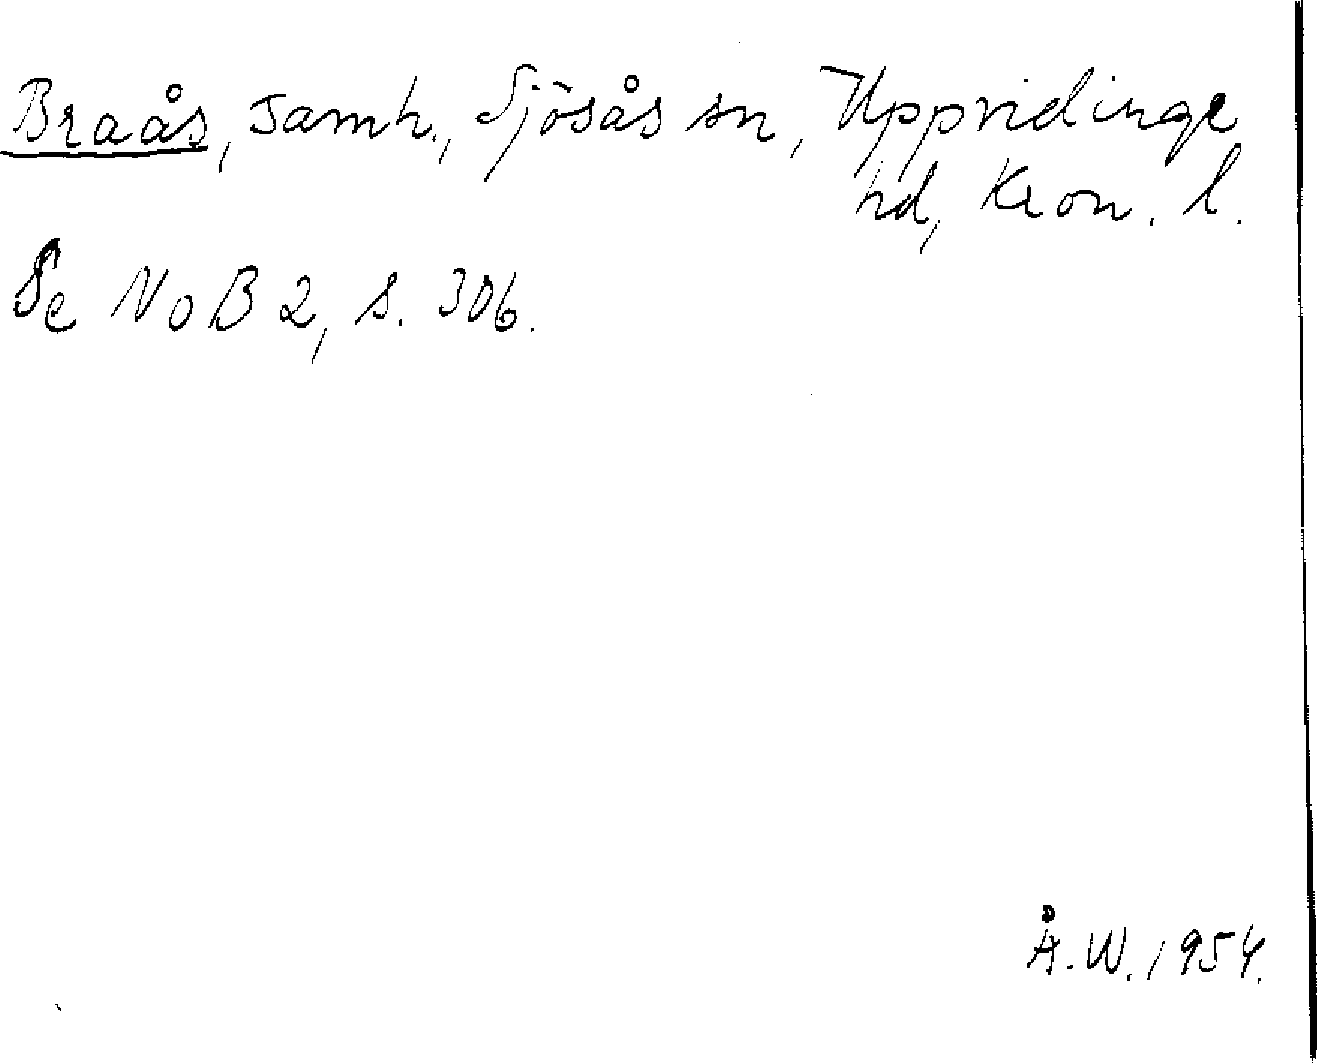 Braås, samh., Sjösås sn, Uppvidinge
hd, Kron. l.
Se NoB 2, s. 306.
Å.W. 1954.